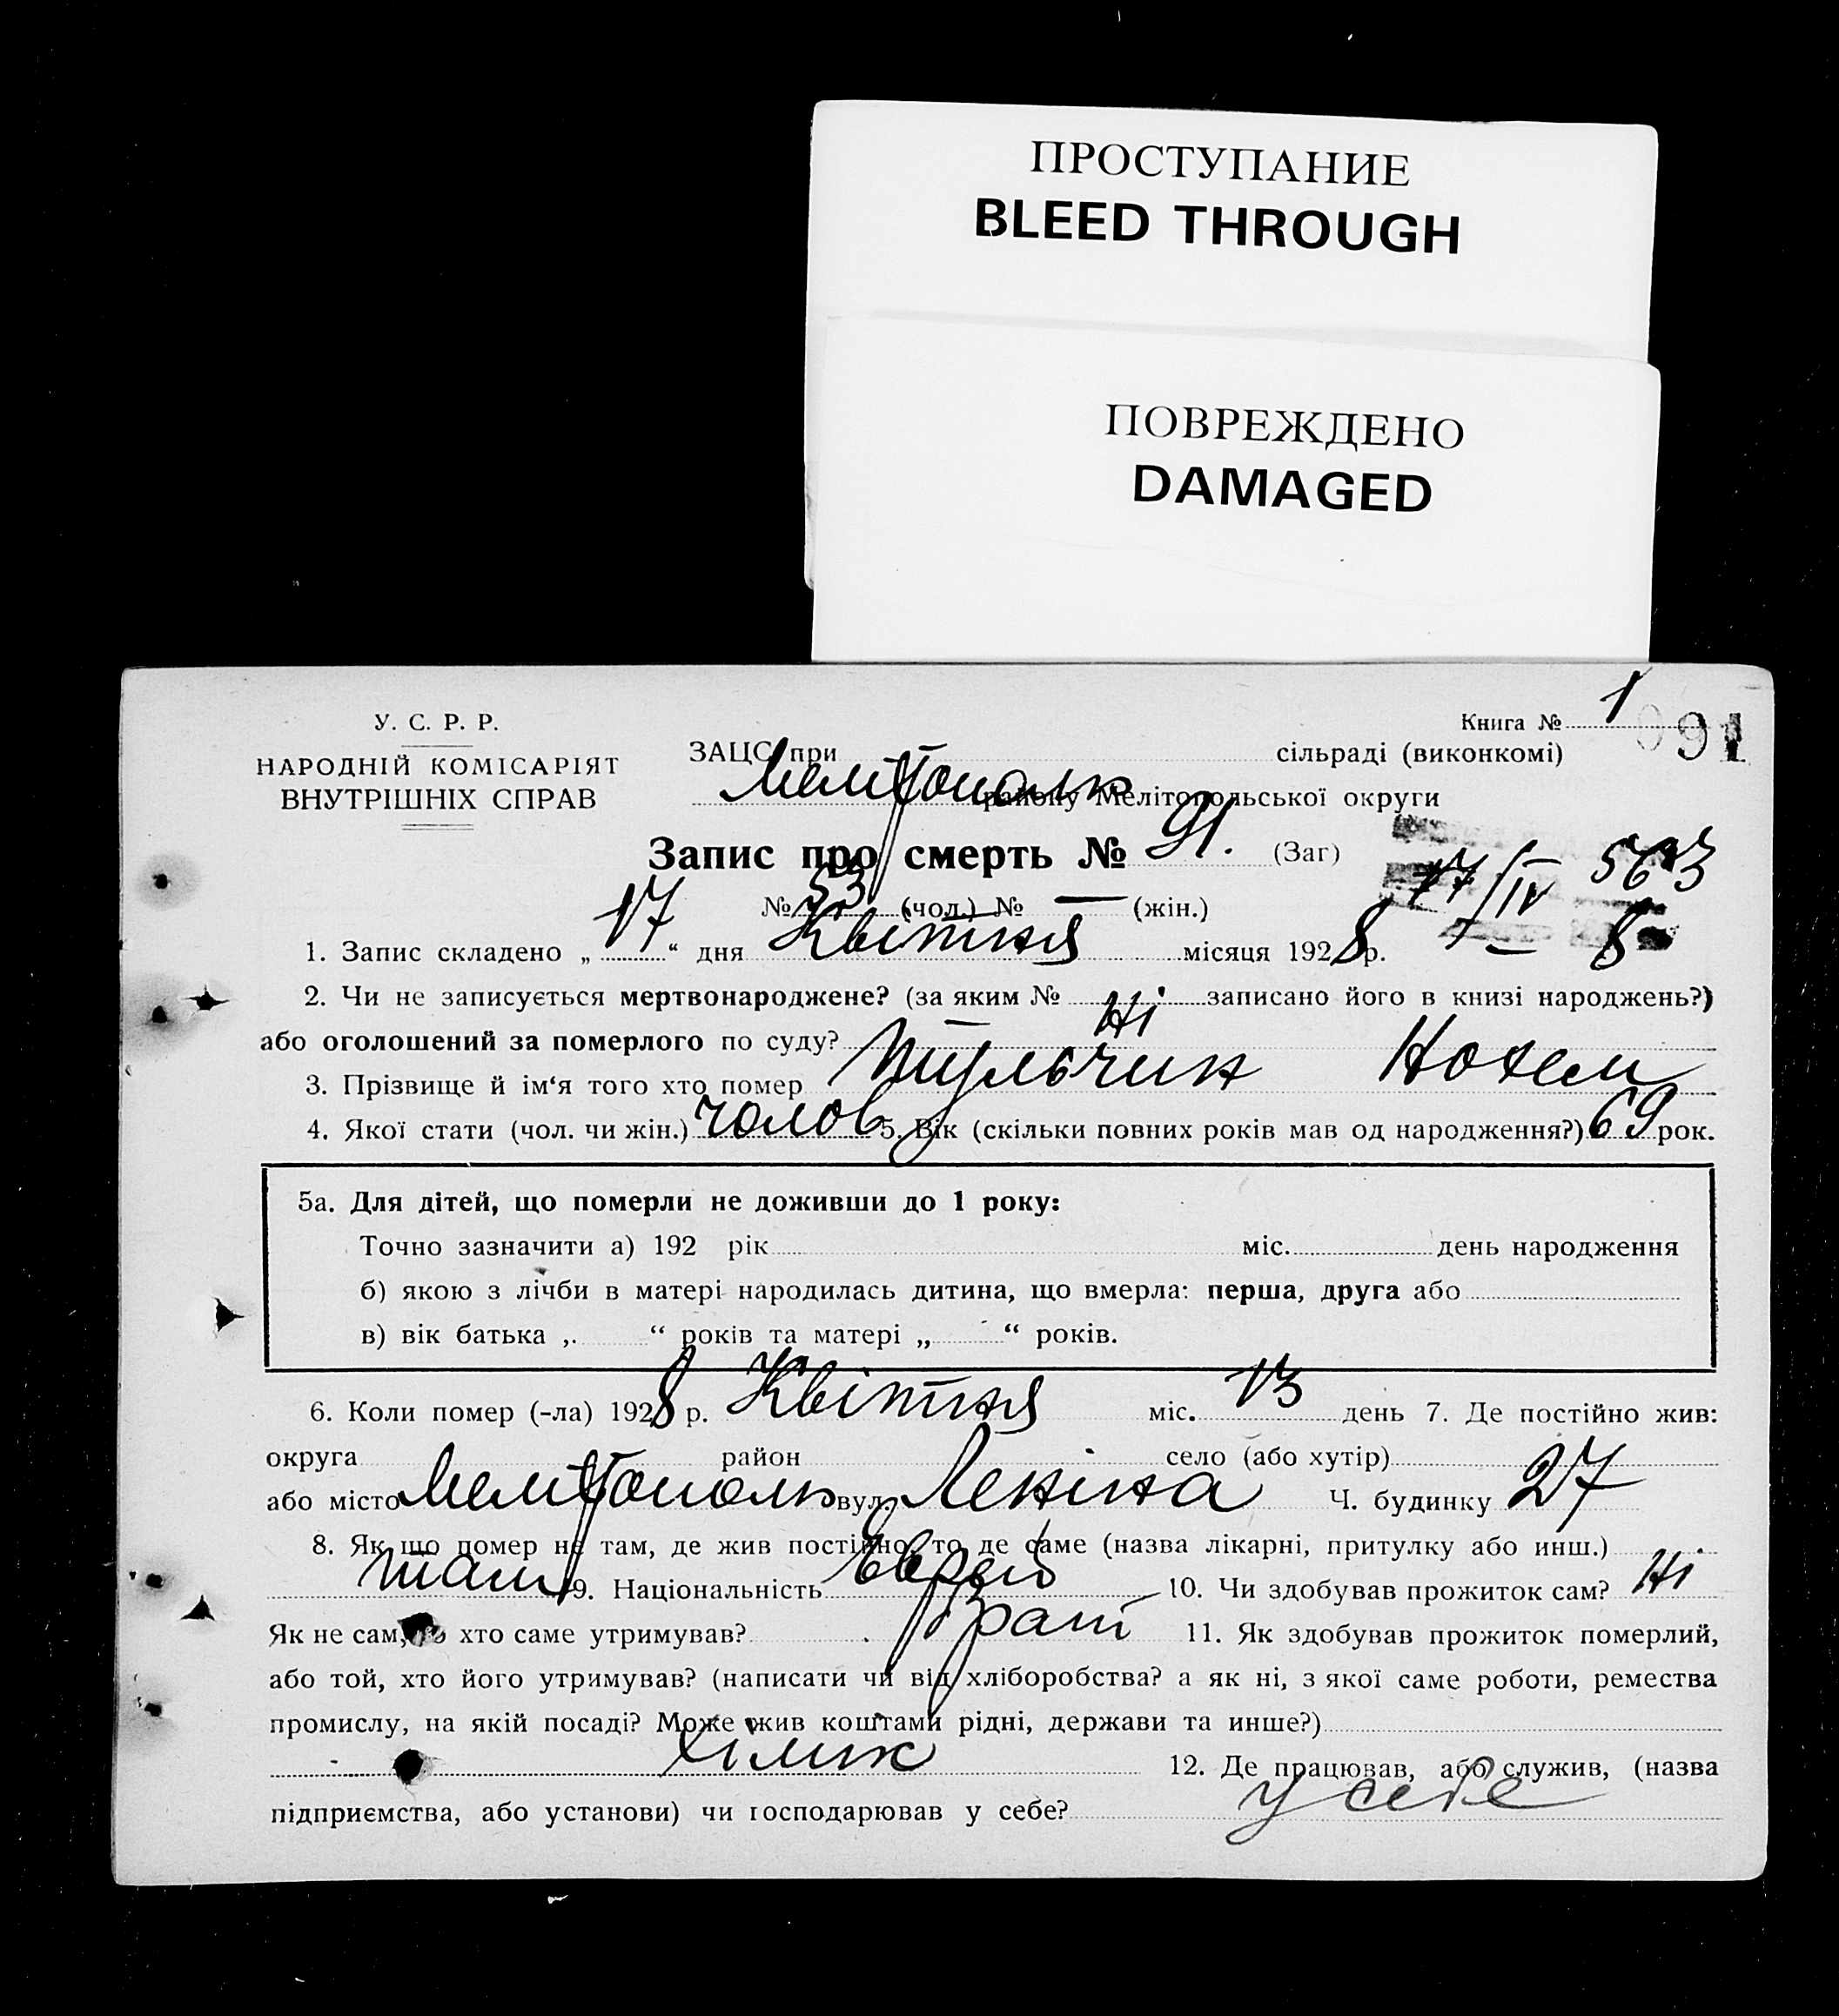 ПРОСТУПАНИЕ
BLEED THROUGH
ПОВРЕЖДЕНО
DAMAGED
У. С. Р. Р.
НАРОДНІЙ КОМІСАРІЯТ
ВНУТРІШНІХ СПРАВ
Книга № 1
091
ЗАЦС при сільраді (виконкомі)
Мелітополь району Мелітопольської округи
Запис про смерть № 91. (Заг)
17/IV 563
№ 53 (чол.) № — (жін.)
1. Запис складено „ 17 “ дня Квітня місяця 1928 р.
2. Чи не записується мертвонароджене? (за яким № записано його в книзі народжень?)
або оголошений за померлого по суду? Ні
3. Прізвище й ім‘я того хто помер Тульчин Нохем
4. Якої стати (чол. чи жін.) чолов 5. Вік (скільки повних років мав од народження?) 69 рок.
5а. Для дітей, що померли не доживши до 1 року:
Точно зазначити а) 192 рік міс. день народження
б) якою з лічби в матері народилась дитина, що вмерла: перша, друга або
в) вік батька „ “ років та матері „ “ років.
6. Коли помер (-ла) 1928 р. Квітня міс. 13 день 7. Де постійно жив:
округа район село (або хутір)
або місто Мелітополь вул. Леніна Ч. будинку 27
8. Як що помер не там, де жив постійно, то де саме (назва лікарні, притулку або инш.)
там 9. Національність Еврей 10. Чи здобував прожиток сам? Ні
Як не сам, то хто саме утримував? брат 11. Як здобував прожиток померлий,
або той, хто його утримував? (написати чи від хліборобства? а як ні, з якої саме роботи, ремества
промислу, на якій посаді? Може жив коштами рідні, держави та инше?)
хімик 12. Де працював, або служив, (назва
підприємства, або установи) чи господарював у себе? у себе